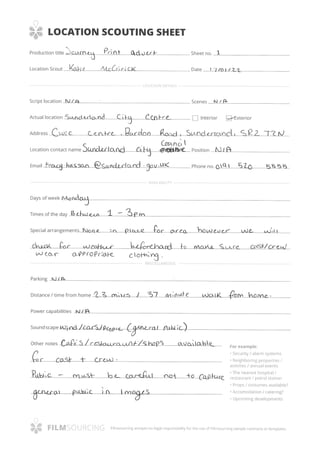 LOCATION SCOUTING SHEET
Production title Journey Print advert Sheet no 1
Location Scout Katie McGirick Date 12/01/22
Script location N/A Scenes N/A
Actual location Sunderland City Centre Interior Exterior
Address Civic Centre, Burdon Road, Sunderland, SR2 7DN
Location contact name Sunderland City Council Position N/A
Email tracy.hassan@sunderland.gov.uk Phone no 0191 520 5555
Days of week Monday
Times of the day Between 1 - 3pm
Special arrangements None in place for area however we will
check for weather beforehand to make sure cast/crew
wear appropriate clothing.
Parking N/A
Distance / time from home 2.3 miles / 37 minute walk from home.
Power capabilities N/A
Soundscape Wind/cars/people (general public)
Other notes Cafes/restaurant/shops available
for cast + crew.
Public - must be careful not to capture
general public in Images
For example:
• Security / alarm systems
• Neighboring properties / activities / annual events
• The nearest hospital / restaurant / petrol station
• Props / costumes available?
• Accomodation / catering?
• Upcoming developments
FILMSOURCING